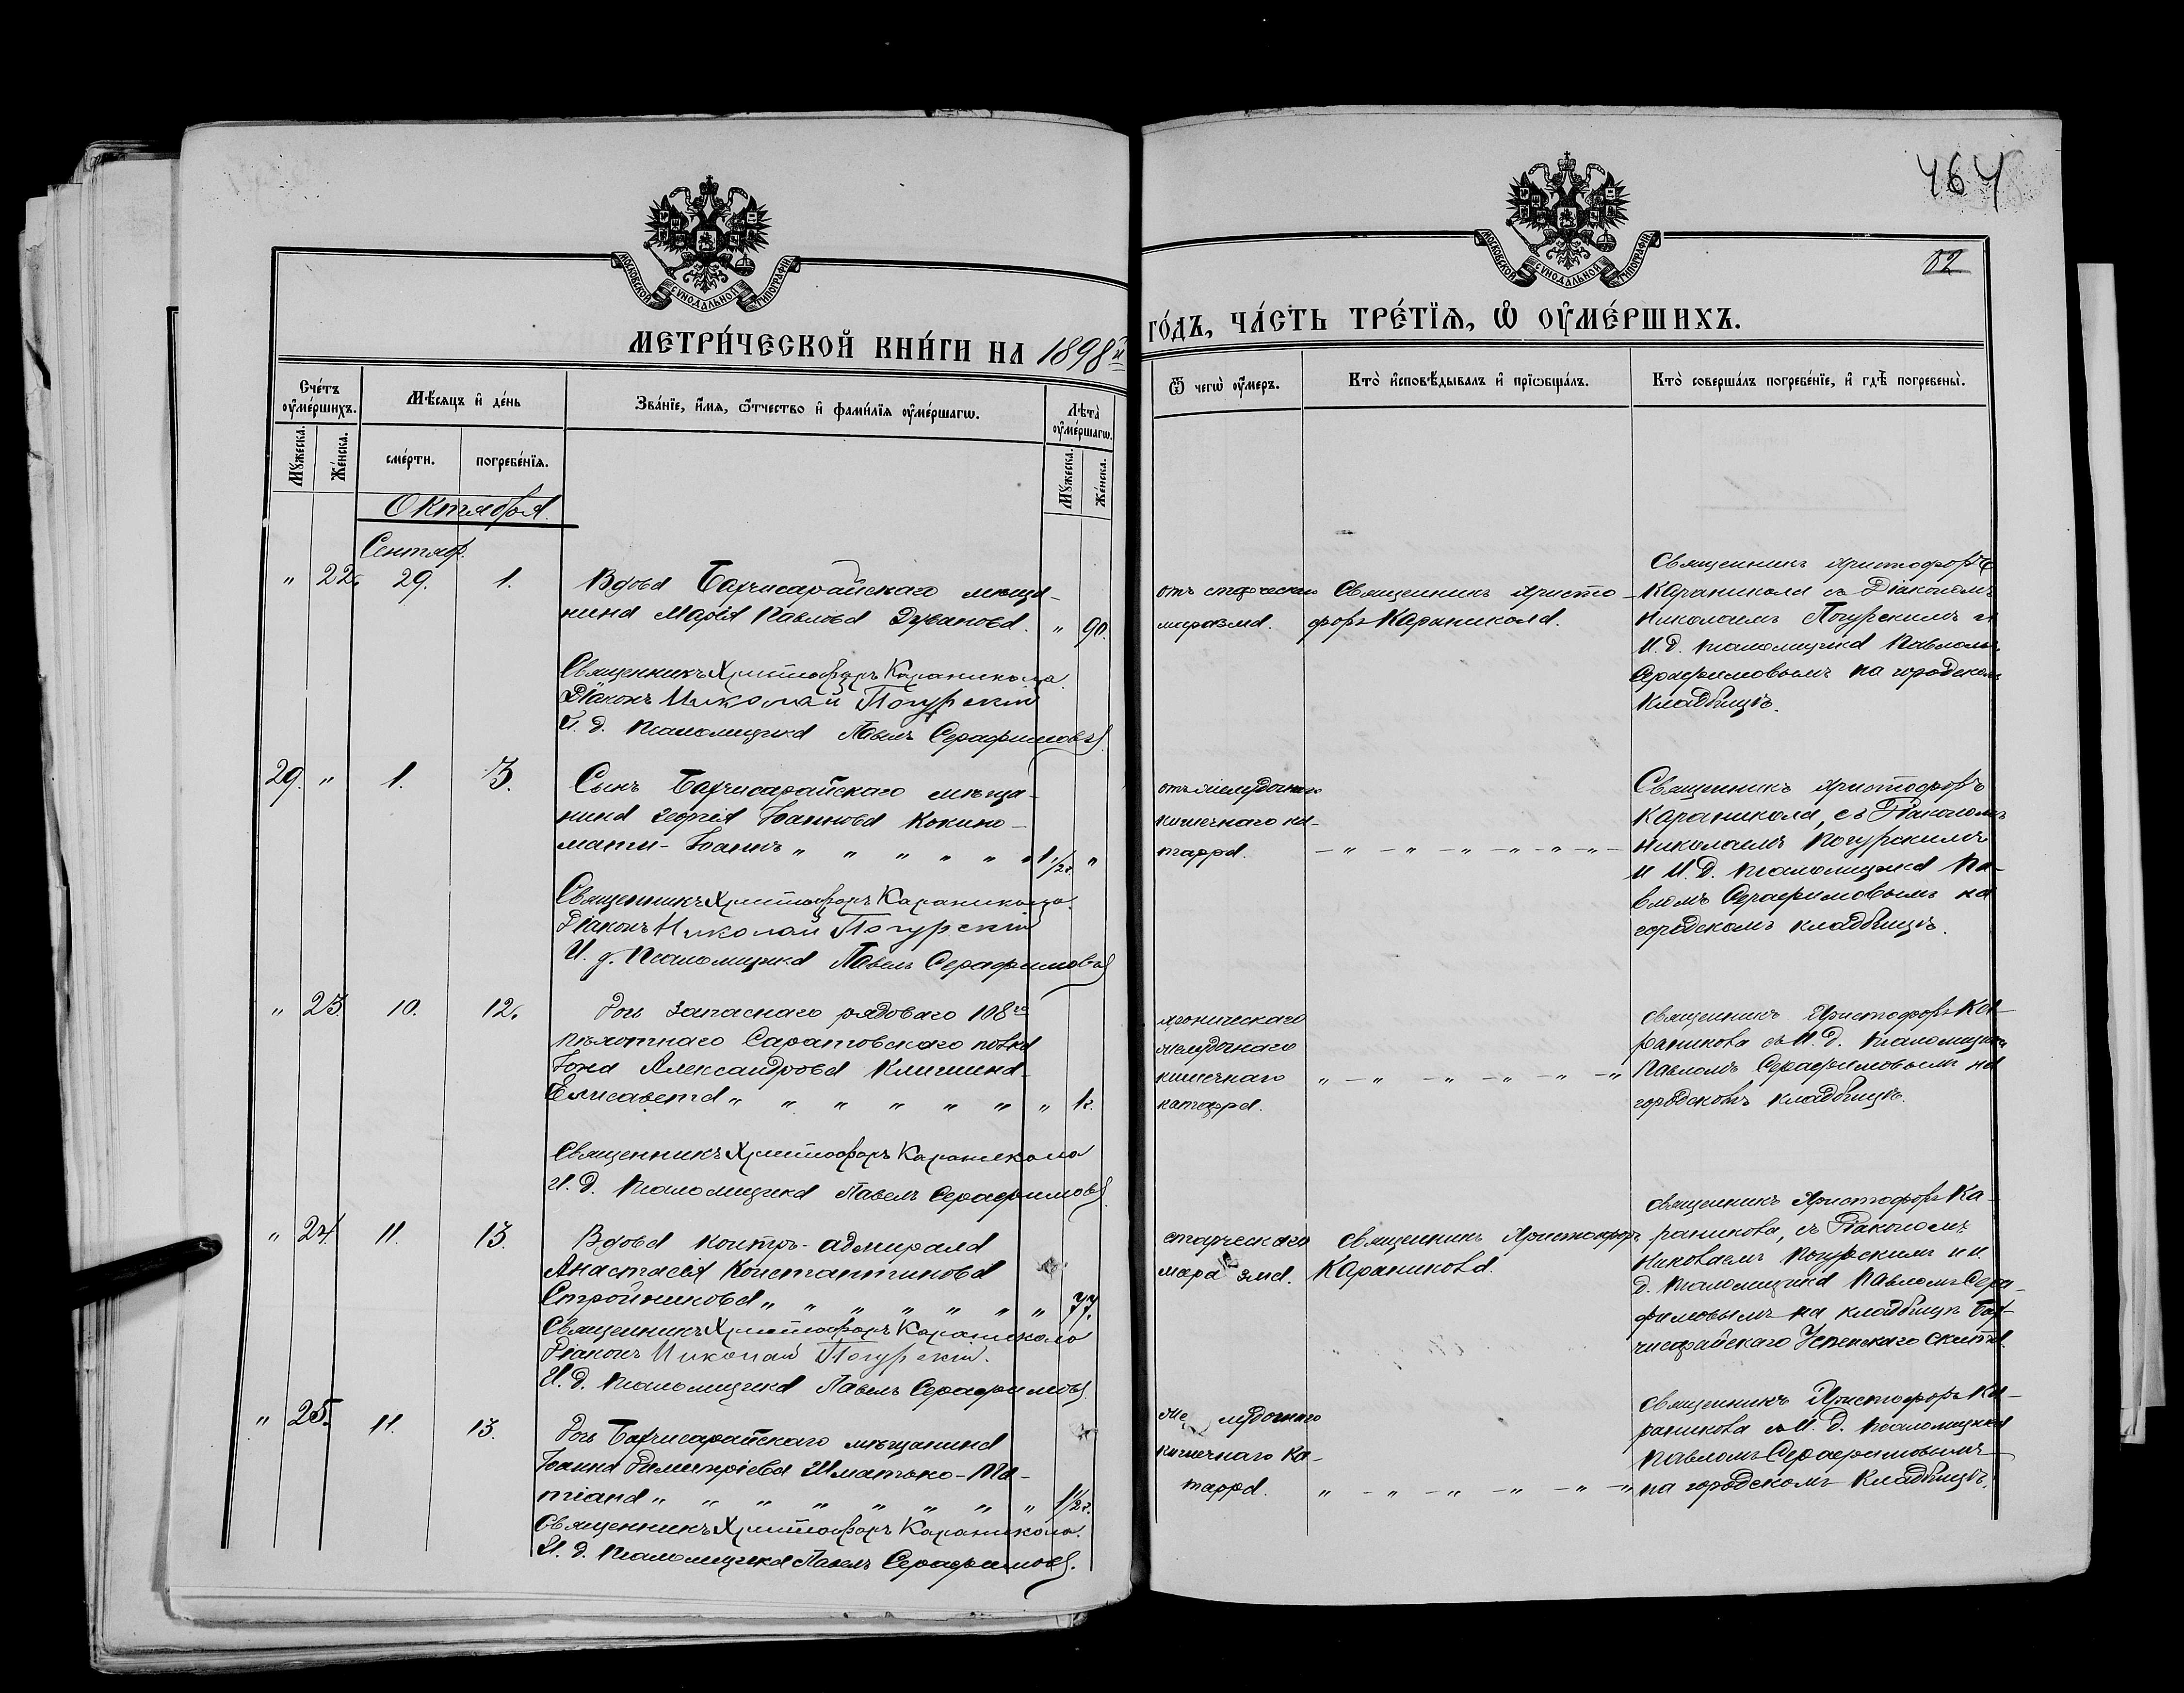 464
82
МОСКОВСКОЙ СУНОДАЛЬНОЙ ТИПОГРАФІИ
МОСКОВСКОЙ СУНОДАЛЬНОЙ ТИПОГРАФІИ
МЕТРИ́ЧЕСКОЙ КНИ́ГИ НА 1898й
ГО́ДЪ, ЧА́СТЬ ТРЕ́ТІЯ, Ѡ ОУМЕ́РШИХЪ.
Сче́тъ оуме́ршихъ.
Му́жеска.
Же́нска.
Мѣ́сяцъ и де́нь
сме́рти.
погребе́нїя.
Зва́нїе, и́мя, ѻ́тчество и фами́лїя оуме́ршагѡ.
Лѣта̀ оуме́ршагѡ.
Му́жеска.
Же́нска.
Ѿ чегѡ̀ оу́меръ.
Кто̀ исповѣ́дывалъ и прїѡбща́лъ.
Кто̀ соверша́лъ погребе́нїе, и гдѣ̀ погребены̀.
Октября
Сентяб.
" 22. 29. 1.
Вдова Бахчисарайскаго мѣща-
нина Марія Павлова Дуванова. " 90.
Священникъ Христофоръ Караникола
Діаконъ Николай Погурскій
И. д. псаломщика Павелъ Серафимовъ
отъ старческаго
маразма.
Священникъ Христо-
форъ Караникола.
Священникъ Христофоръ
Караникола съ Діакономъ
Николаемъ Погурскимъ и
И. д. псаломщика Павломъ
Серафимовымъ на городскомъ
кладбищѣ.
29. " 1. 3.
Сынъ Бахчисарайскаго мѣща-
нина Георгія Іоаннова Кокино-
мати- Іоаннъ " " " " " " 1 1/2 г. "
Священникъ Христофоръ Караникола.
Діаконъ Николай Погурскій
И. д. Псаломщика Павелъ Серафимовъ
отъ желудочно
кишечнаго ка-
тарра.
— " — " — " — " — " — " —
Священникъ Христофоръ
Караникола, съ Діакономъ
Николаемъ Погурскимъ
и И. д. псаломщика Па-
вломъ Серафимовымъ на
городскомъ кладбищѣ.
" 23. 10. 12.
Дочь запаснаго рядоваго 108го
пѣхотнаго Саратовскаго полка
Іона Александрова Клишина-
Елисавета " " " " " " " 1 г.
Священникъ Христофоръ Караникола
И. д. псаломщика Павелъ Серафимовъ
хроническаго
желудочнаго
кишечнаго
катарра.
" — " — " — " — " — "
Священникъ Христофоръ Ка-
раникола съ И. д. псаломщика
Павломъ Серафимовымъ на
городскомъ кладбищѣ.
" 24. 11. 13.
Вдова контръ-адмирала
Анастасія Константинова
Стройникова " " " " " " " 77.
Священникъ Христофоръ Караникола
Діаконъ Николай Погурскій.
И. д. псаломщика Павелъ Серафимовъ
старческаго
маразма.
Священникъ Христофоръ
Караникола.
Священникъ Христофоръ Ка-
раникола, съ Діакономъ
Николаемъ Погурскимъ и И.
д. псаломщика Павломъ Сера-
фимовымъ на кладбищѣ Бах-
чисарайскаго Успенскаго скита.
" 25. 11. 13.
Дочь Бахчисарайскаго мѣщанина
Іоанна Димитріева Шматько-
тіана " " " " " " " " 1 1/2 г.
Священникъ Христофоръ Караникола.
И. д. псаломщика Павелъ Серафимовъ.
желудочнаго
кишечнаго ка-
тарра.
" — " — " — " — " — "
Священникъ Христофоръ Ка-
раникола съ И. д. псаломщика
Павломъ Серафимовымъ
на городскомъ кладбищѣ.